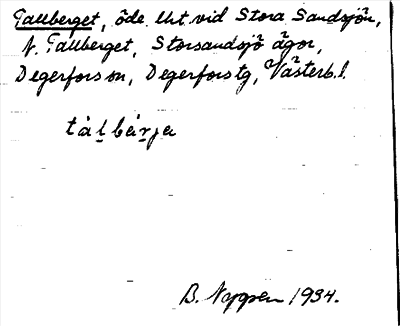 Tallberget, öde lht. vid Stora Sandsjön,
N. Tallberget, Storsandsjö ägor,
Degerfors sn, Degerfors tg, Västerb. l.
tàḷbár̠ja
B. Noppen 1934.